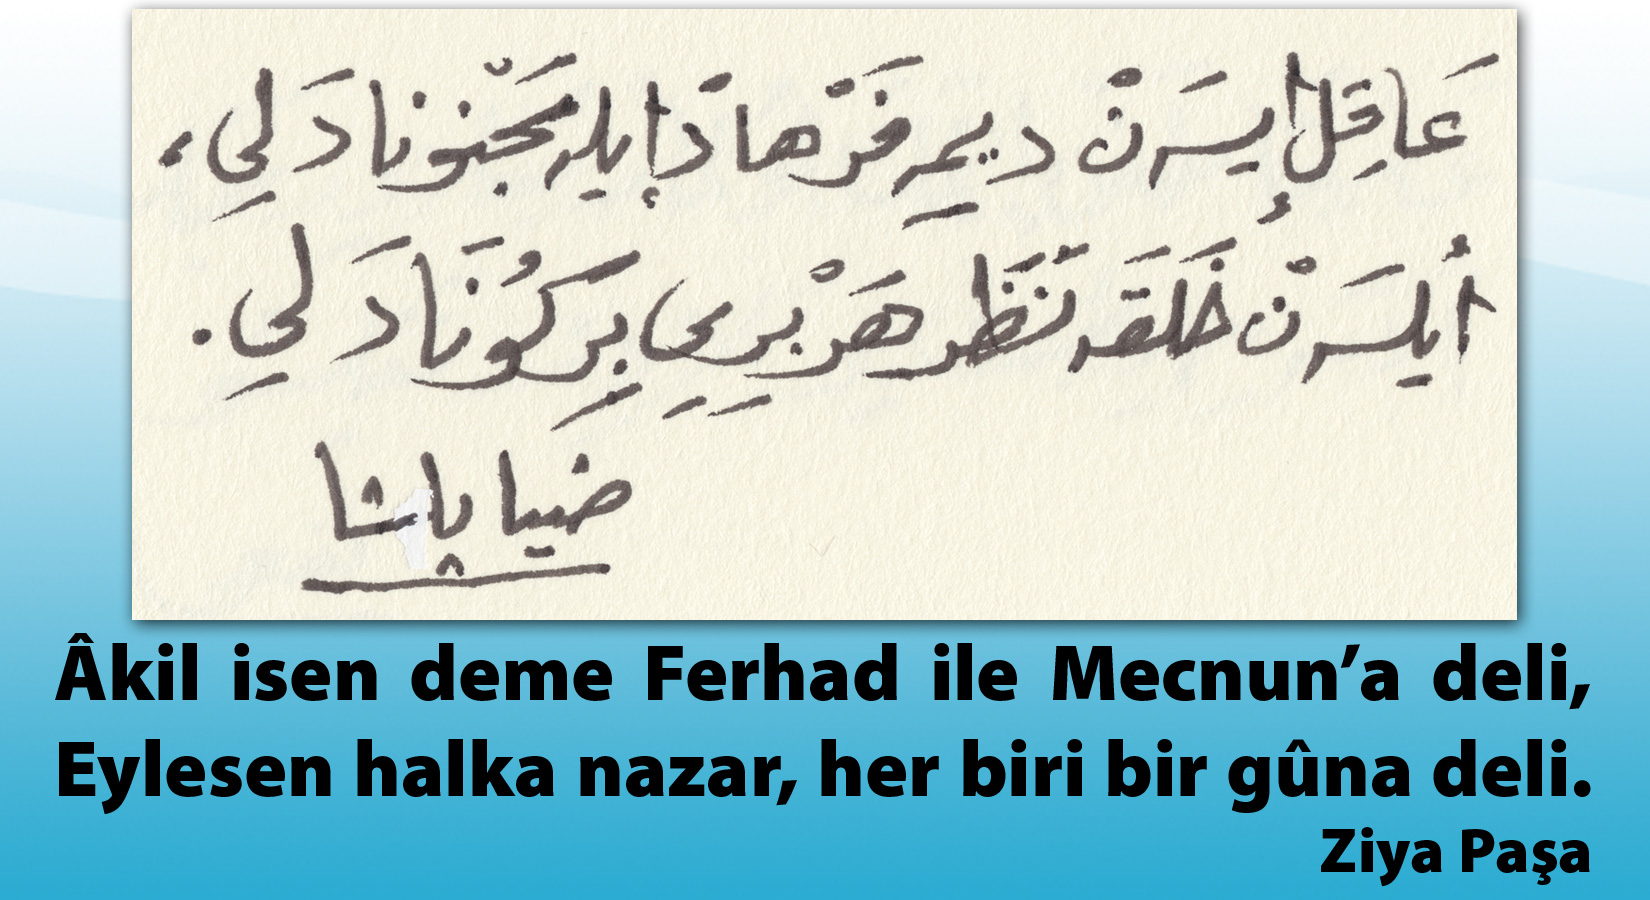 عَاقِل إيسَه نْ ديمِه فَرْهادَ إيله مَجْنونا دَلي،
أيلسَه نْ خَلقَه نَظَر هَرْ بِري بِر كُونَا دَلي.
ضيا پاشا
Âkil isen deme Ferhad ile Mecnun’a deli,
Eylesen halka nazar, her biri bir gûna deli.
Ziya Paşa